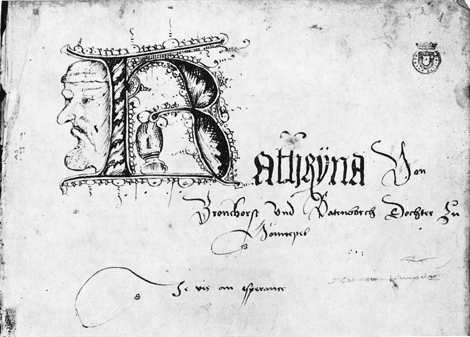 Kathrÿna Von
Bronchorst Und Batenborch Dochter Zu
Hönnepel
Je vis an esperance